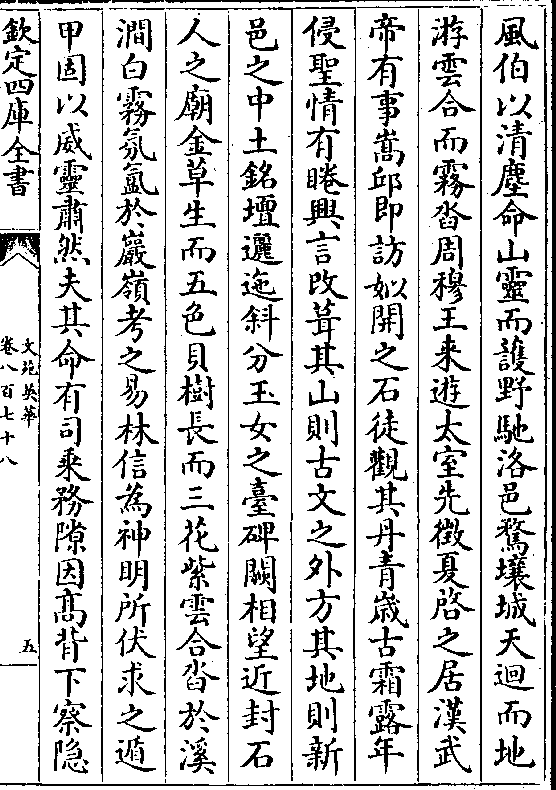 風伯以清塵命山靈而護野馳洛邑騖壤城天迴而地
游雲合而霧沓周穆王来遊太室先徴夏啓之居漢武
帝有事嵩邱即訪姒開之石徒觀其丹青歳古霜露年
侵聖情有睠興言改葺其山則古文之外方其地則新
邑之中土銘壇邐迤斜分玉女之臺碑闕相望近封石
人之廟金草生而五色貝樹長而三花紫雲合沓於溪
澗白霧氛氲於巖嶺考之易林信為神明所伏求之遁
甲固以威靈肅然夫其命有司乘務隙因髙背下察隐
欽定四庫全書
文苑英華
卷八百七十八
五